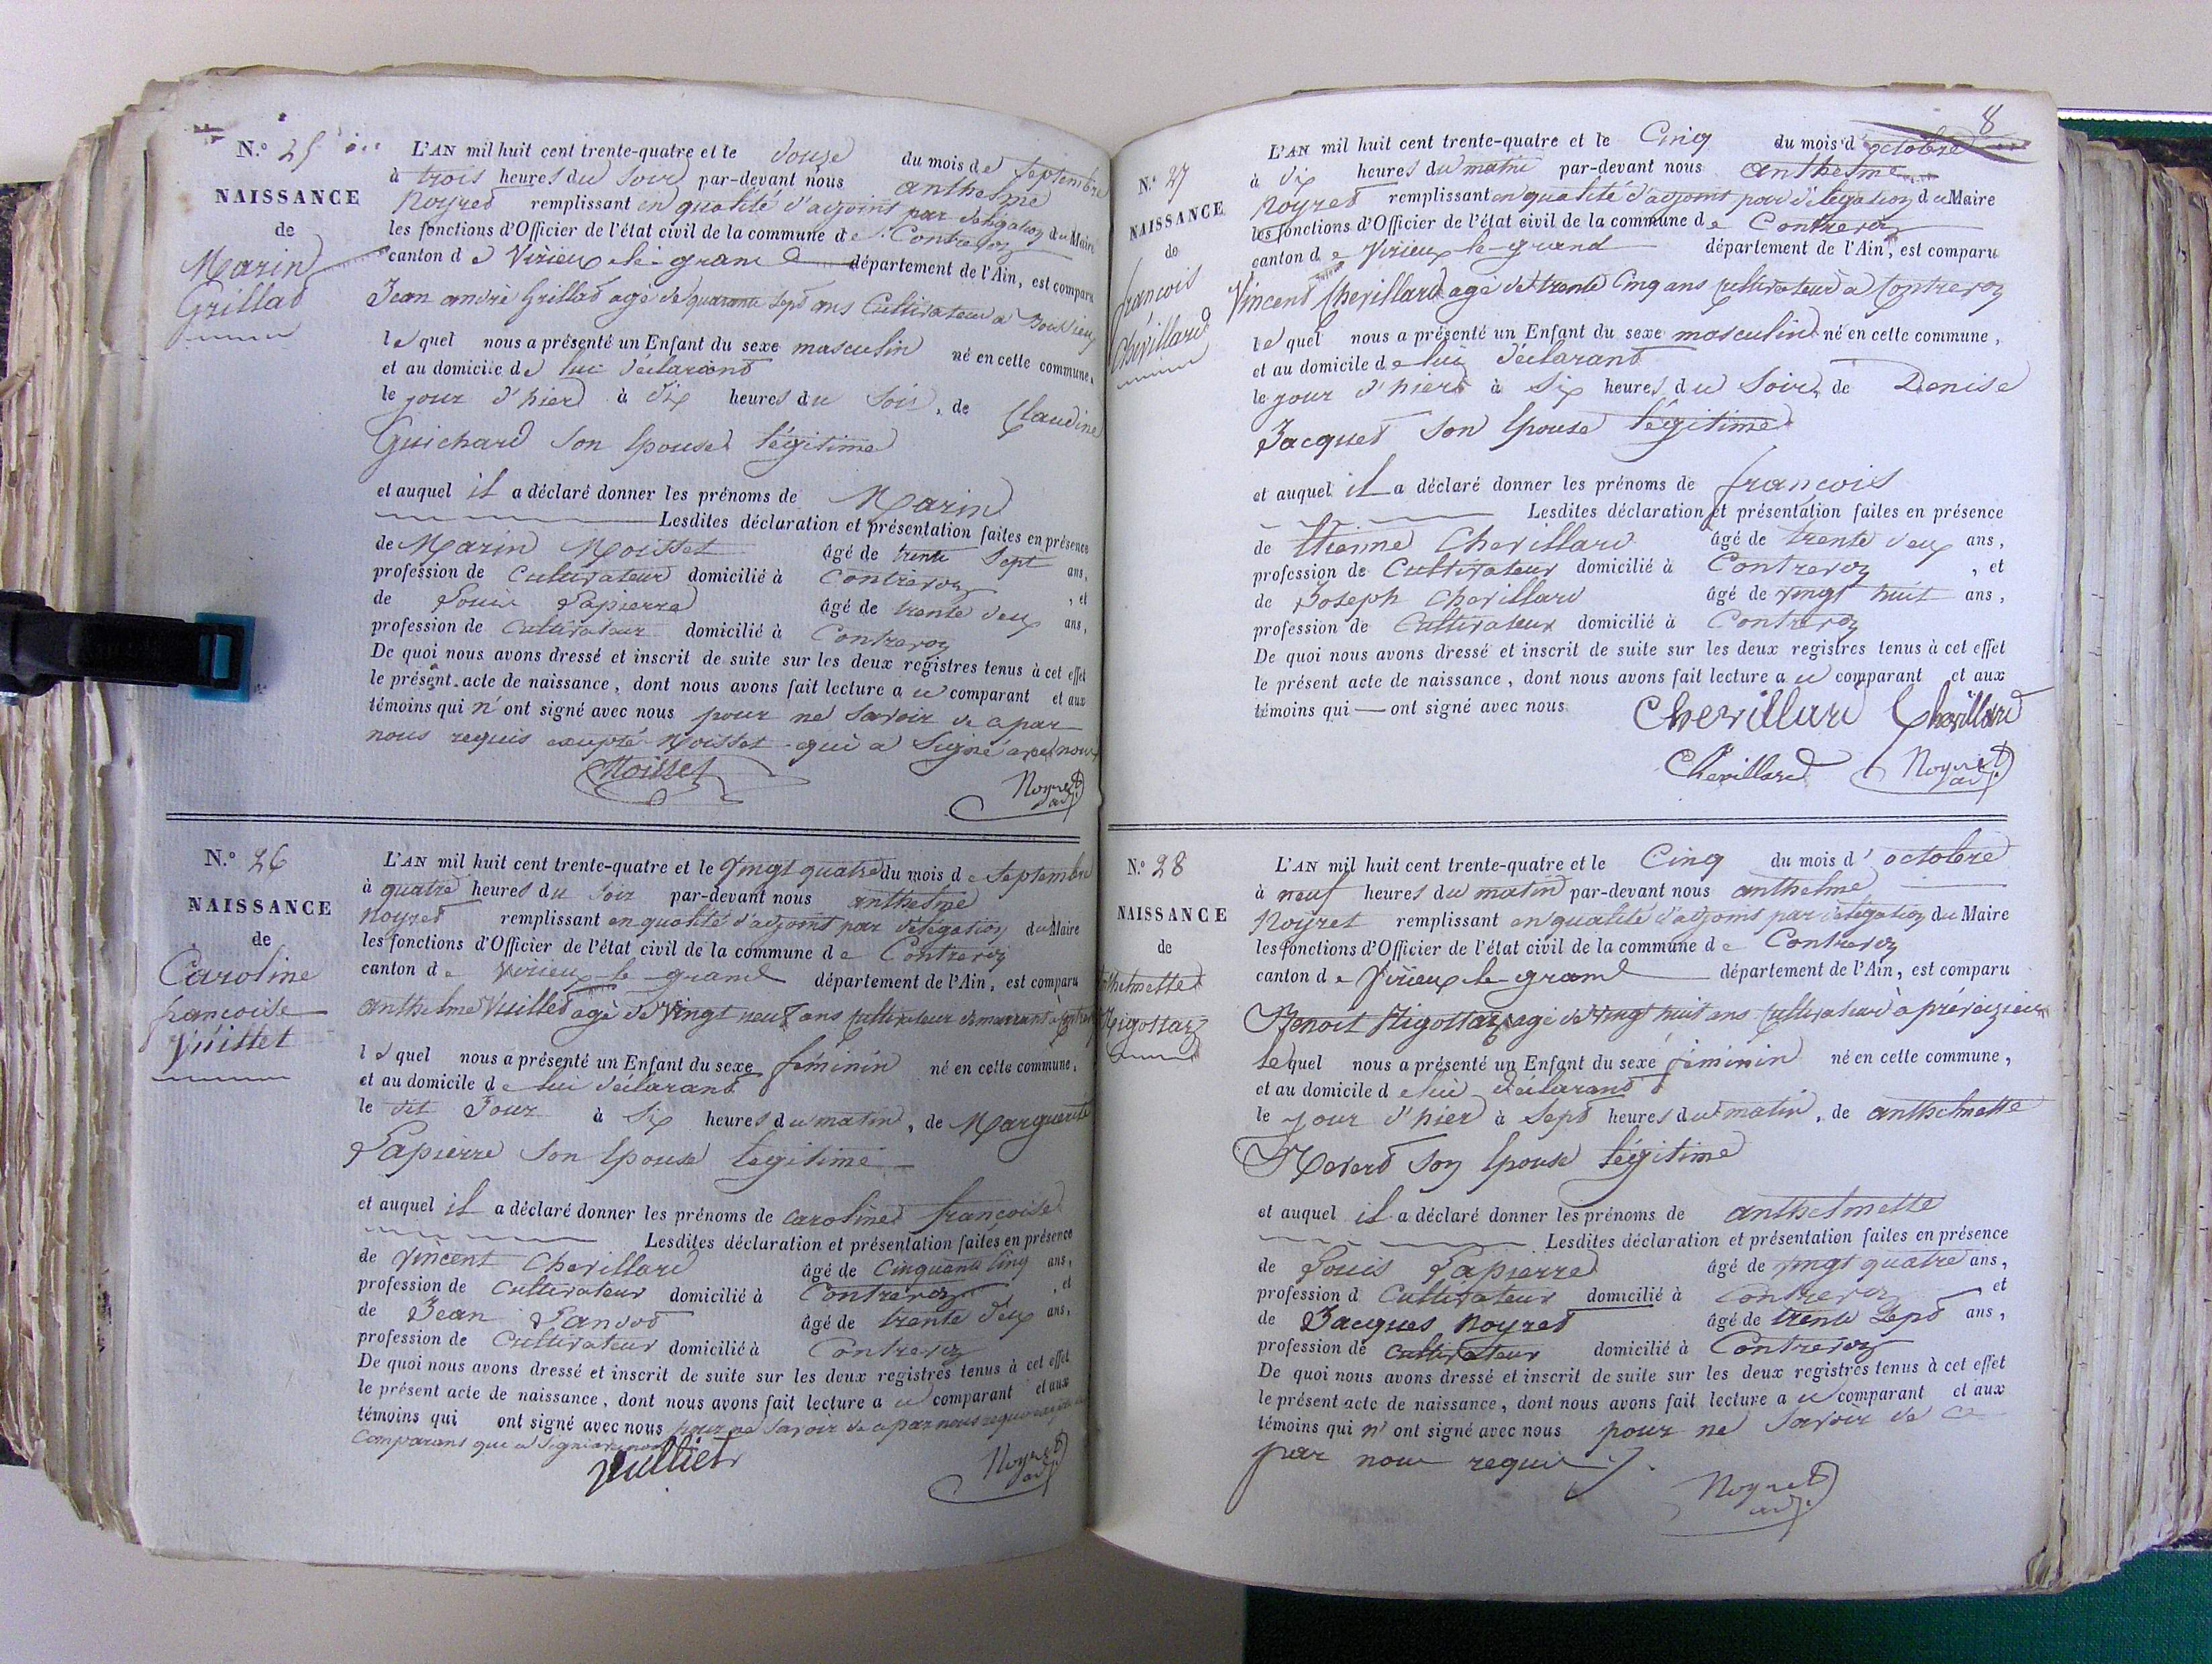 N.° 25
NAISSANCE
de
Marin
Grillad
L'AN mil huit cent trente-quatre et le douse du mois de Septembre
à trois heures du Soir par-devant nous anthelme
Noyred remplissant en qualité d'adjoint par délégation du Maire
les fonctions d'Officier de l'état civil de la commune de Contrevoz
canton de Virieux le grand département de l'Ain, est comparu
Jean andrè Grillad agé de quarante Sept ans Cultivateur a
lequel nous a présenté un Enfant du sexe masculin né en cette commune,
et au domicile de lui déclarand
le jour d'hier à dix heures du Soir, de Claudine
Guichard Son Epouse légitime
et auquel il a déclaré donner les prénoms de Marin
Lesdites déclaration et présentation faites en présence
de Marin Moisset âgé de trente Sept ans,
profession de Cultivateur domicilié à Contrevoz , et
de Louis Lapierre âgé de trente deux ans,
profession de Cultivateur domicilié à Contrevoz
De quoi nous avons dressé et inscrit de suite sur les deux registres tenus à cet effet
le présent acte de naissance, dont nous avons fait lecture au comparant et aux
témoins qui n'ont signé avec nous pour ne Savoir de ce par
nous requis excepté Moisset qui a Signé avec nous
Moisset
Noyred adj.
N.° 26
NAISSANCE
de
Caroline
francoise
Vuillet
L'AN mil huit cent trente-quatre et le Vingt quatre du mois de Septembre
à quatre heures du Soir par-devant nous anthelme
Noyred remplissant en qualité d'adjoint par délégation du Maire
les fonctions d'Officier de l'état civil de la commune de Contrevoz
canton de Virieux le grand département de l'Ain, est comparu
anthelme Vuilled agé de Vingt neuf ans Cultivateur demeurant a
lequel nous a présenté un Enfant du sexe féminin né en cette commune,
et au domicile de lui déclarand
le dit Jour à Six heures du matin, de Marguerite
Lapierre Son Epouse légitime
et auquel il a déclaré donner les prénoms de caroline francoise
Lesdites déclaration et présentation faites en présence
de Vincent Chevillard âgé de Cinquante Cinq ans,
profession de Cultivateur domicilié à Contrevoz , et
de Jean âgé de trente deux ans,
profession de Cultivateur domicilié à Contrevoz
De quoi nous avons dressé et inscrit de suite sur les deux registres tenus à cet effet
le présent acte de naissance, dont nous avons fait lecture au comparant et aux
témoins qui ont signé avec nous pour ne Savoir de ce par nous requis
Comparant qui a Signé avec nous
Vuilliet
Noyred adj.
8
N.° 27
NAISSANCE
de
francois
Chevillard
L'AN mil huit cent trente-quatre et le Cinq du mois d'octobre
à dix heures du matin par-devant nous anthelme
Noyred remplissant en qualité d'adjoint pour délégation du Maire
les fonctions d'Officier de l'état civil de la commune de Contrevoz
canton de Virieux le grand département de l'Ain, est comparu
Vincend Chevillard agé de trente Cinq ans Cultivateur a Contrevoz
lequel nous a présenté un Enfant du sexe masculin né en cette commune,
et au domicile de lui déclarand
le jour d'hier à Six heures du Soir, de Denise
Jacqued Son Epouse légitime
et auquel il a déclaré donner les prénoms de francois
Lesdites déclaration et présentation faites en présence
de Etienne Chevillard âgé de trente deux ans,
profession de Cultivateur domicilié à Contrevoz , et
de Joseph Chevillard âgé de vingt huit ans,
profession de Cultivateur domicilié à Contrevoz
De quoi nous avons dressé et inscrit de suite sur les deux registres tenus à cet effet
le présent acte de naissance, dont nous avons fait lecture au comparant et aux
témoins qui — ont signé avec nous
Chevillard Chevillard
Chevillard Noyred adj.
N.° 28
NAISSANCE
de
anthelmette
Rigottaz
L'AN mil huit cent trente-quatre et le Cinq du mois d'octobre
à neuf heures du matin par-devant nous anthelme
Noyret remplissant en qualité d'adjoint par délégation du Maire
les fonctions d'Officier de l'état civil de la commune de Contrevoz
canton de Virieux le grand département de l'Ain, est comparu
Benoit Rigottaz agé de vingt huit ans Cultivateur a préveizieux
lequel nous a présenté un Enfant du sexe féminin né en cette commune,
et au domicile de lui déclarand
le jour d'hier à Sept heures du matin, de anthelmette
Son Epouse légitime
et auquel il a déclaré donner les prénoms de anthelmette
Lesdites déclaration et présentation faites en présence
de Louis Lapierre âgé de vingt quatre ans,
profession d Cultivateur domicilié à Contrevoz et
de Jacques Noyred âgé de trente Sept ans,
profession de Cultivateur domicilié à Contrevoz
De quoi nous avons dressé et inscrit de suite sur les deux registres tenus à cet effet
le présent acte de naissance, dont nous avons fait lecture au comparant et aux
témoins qui n'ont signé avec nous pour ne Savoir de ce
par nous requis
Noyred adj.